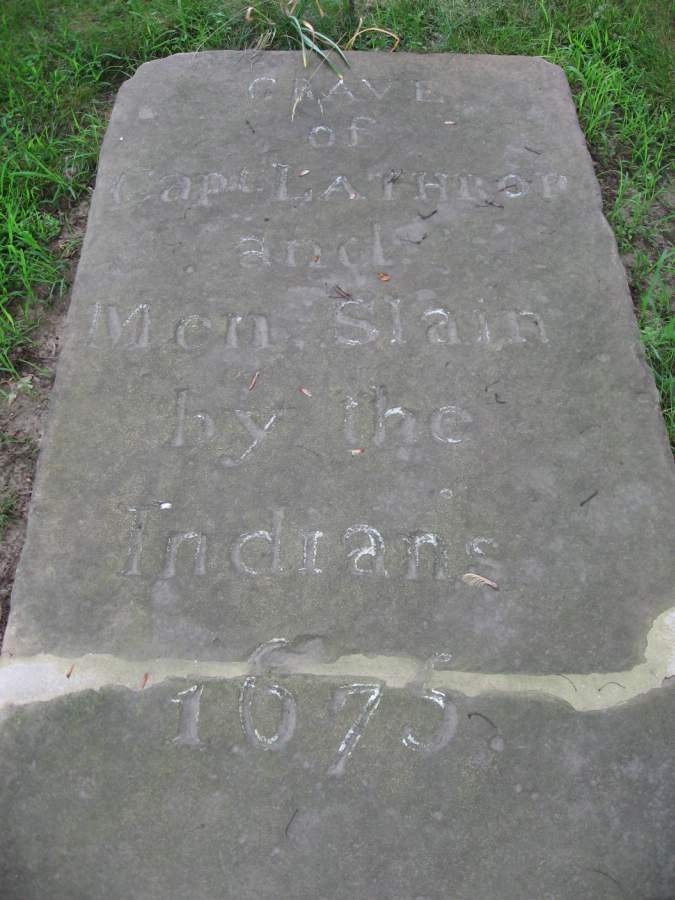 GRAVE
of
Capt. LATHROP
and
Men Slain
by the
Indians
1675.